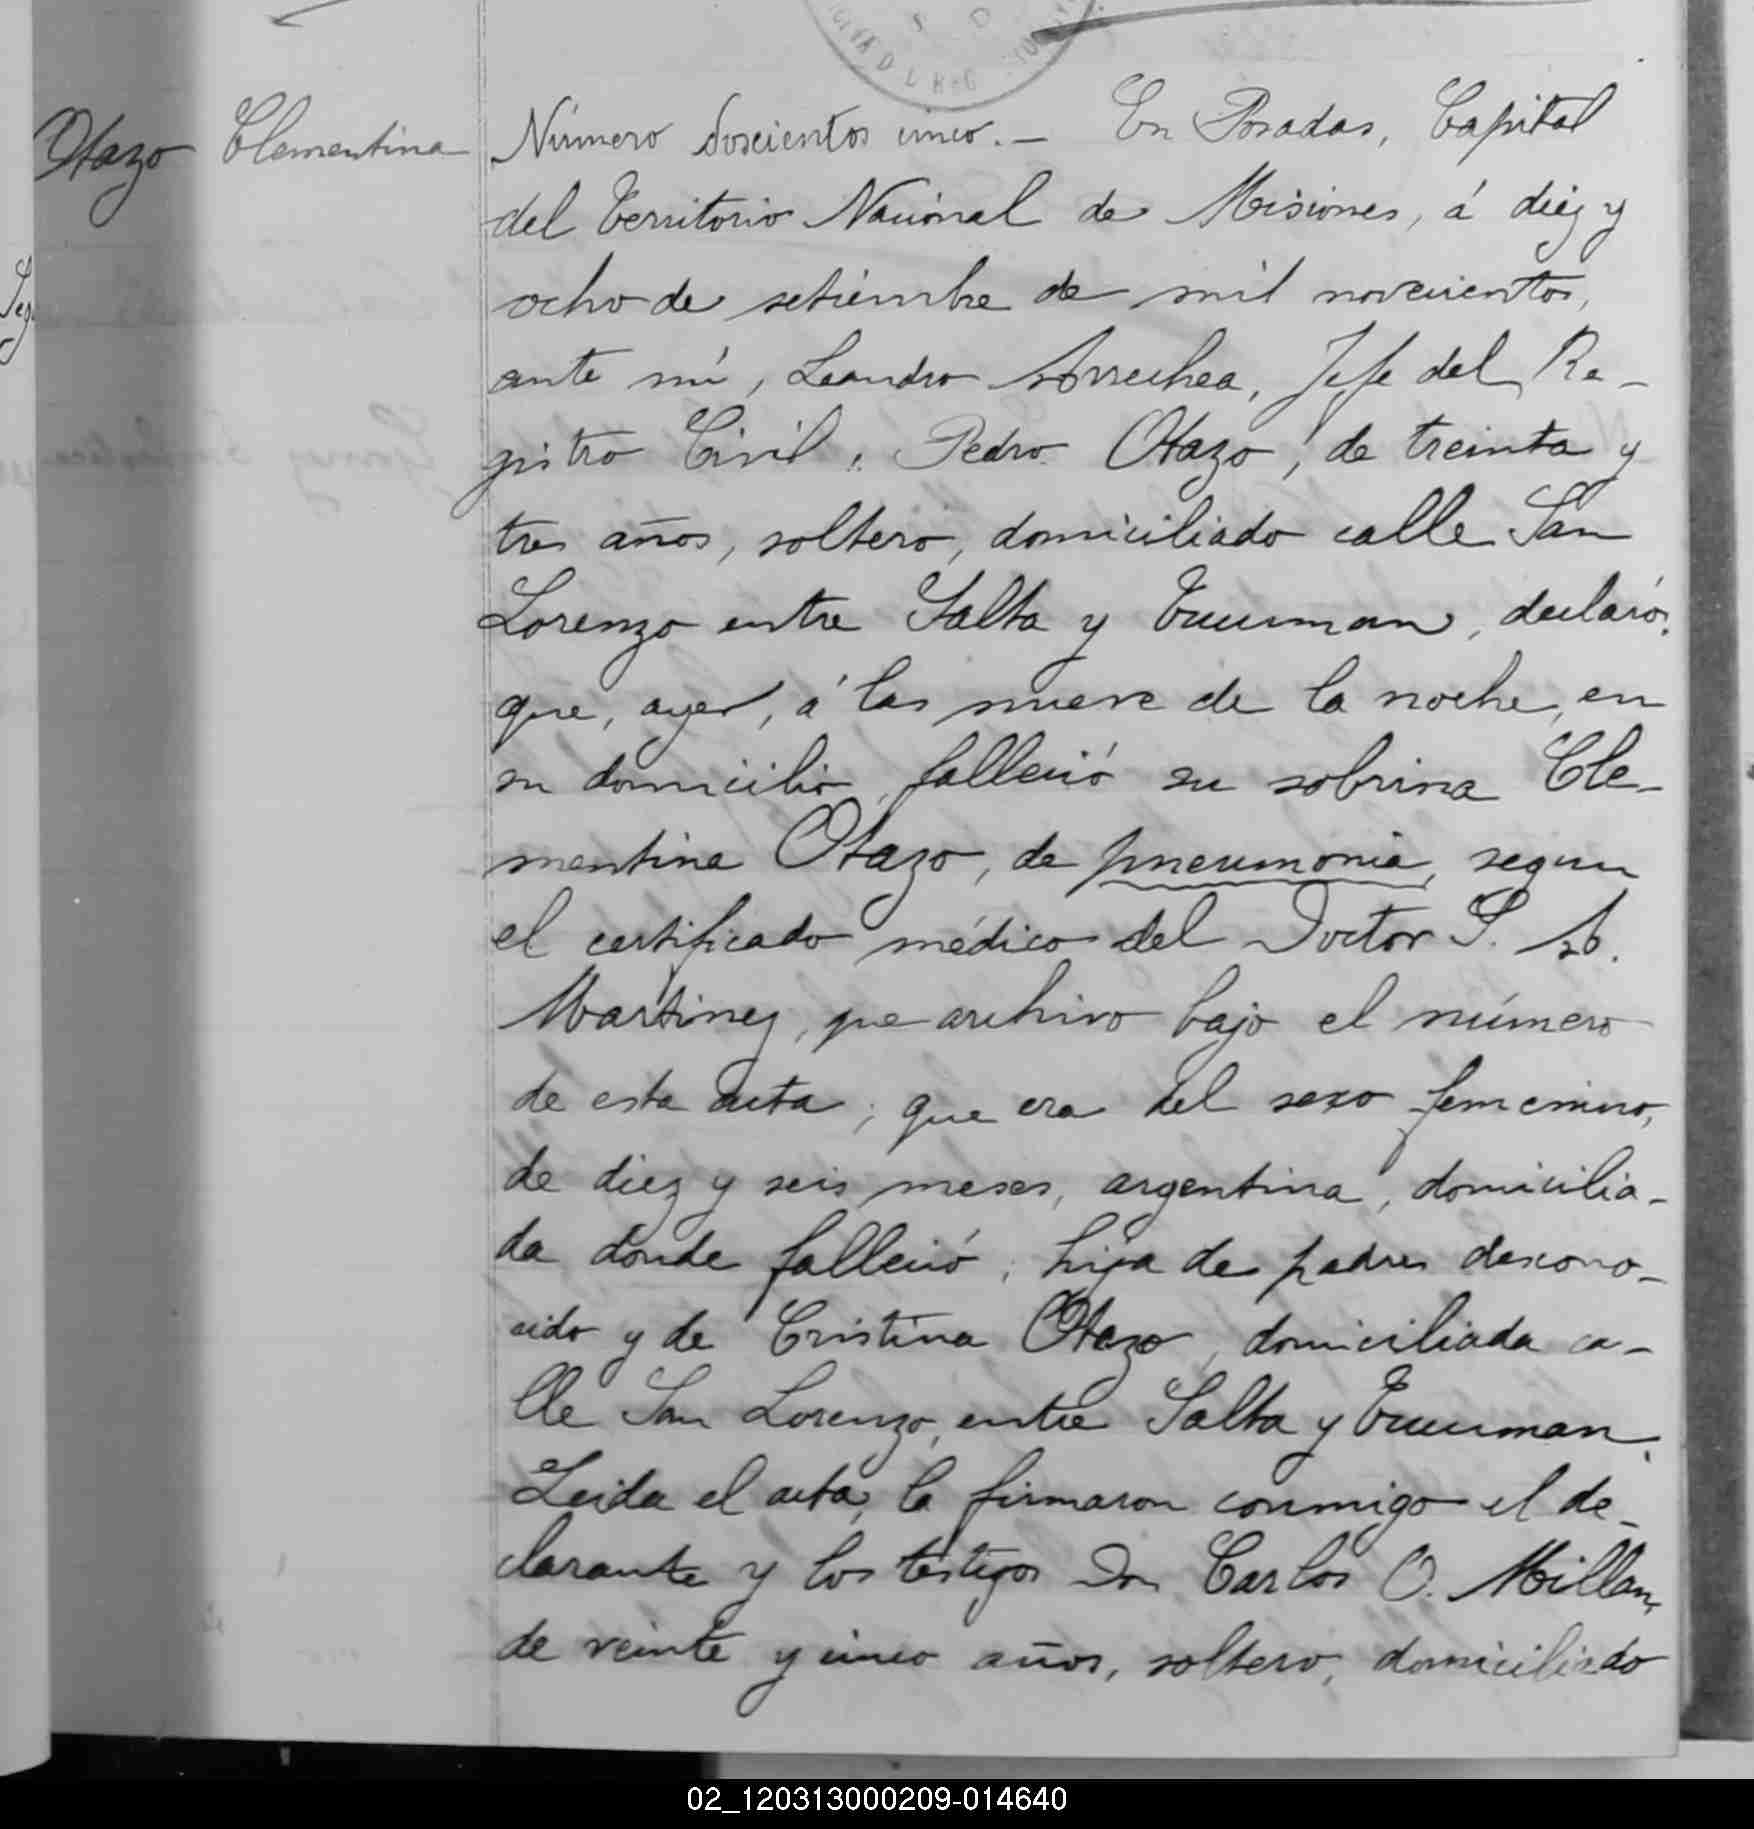 Otazo Clementina
Número doscientos cinco.— En Posadas, Capital
del Territorio Nacional de Misiones, á diez y
ocho de setiembre de mil novecientos,
ante mí, Leandro Arrechea, Jefe del Re-
gistro Civil, Pedro Otazo, de treinta y
tres años, soltero, domiciliado calle San
Lorenzo entre Salta y Tucuman, declaró:
que, ayer, á las nueve de la noche, en
su domicilio, falleció su sobrina Cle-
mentina Otazo, de pneumonia, segun
el certificado médico del Doctor S. A.
Martinez, que archivo bajo el número
de esta acta; que era del sexo femenino,
de diez y seis meses, argentina, domicilia-
da donde falleció; hija de padres descono-
cido y de Cristina Otazo, domiciliada ca-
lle San Lorenzo, entre Salta y Tucuman.
Leida el acta, la firmaron conmigo el de-
clarante y los testigos Don Carlos O. Millan,
de veinte y cinco años, soltero, domiciliado
02_120313000209-014640